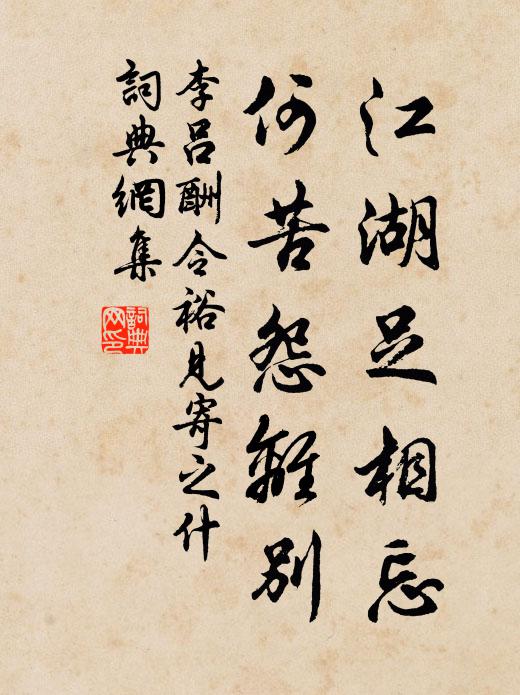 江湖足相忘
何苦怨離別
李呂酬令裕見寄之什
詞典網集
詞典
网印